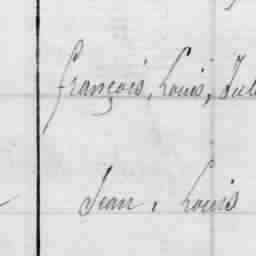 françois, Louis, Jul
Jean, Louis